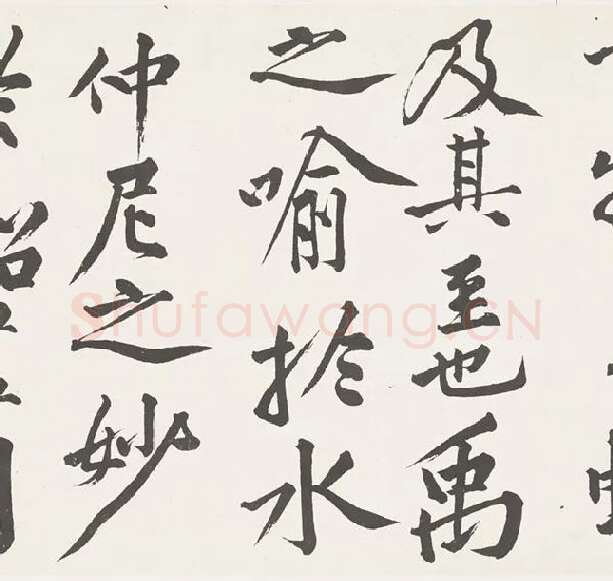 及其至也禹
之喻於水
仲尼之妙
Shufawang.CN